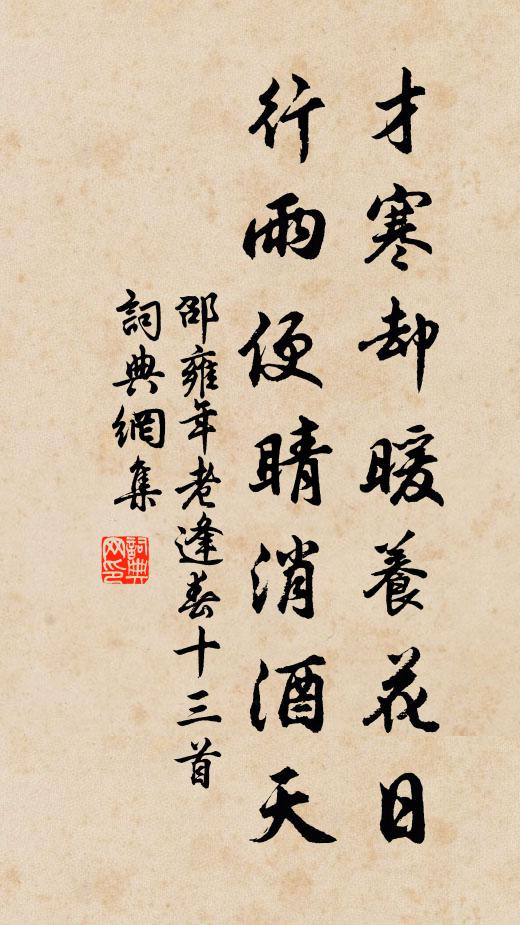 才寒却暖養花日
行雨便晴消酒天
邵雍年老逢春十三首
詞典網集
詞典網印